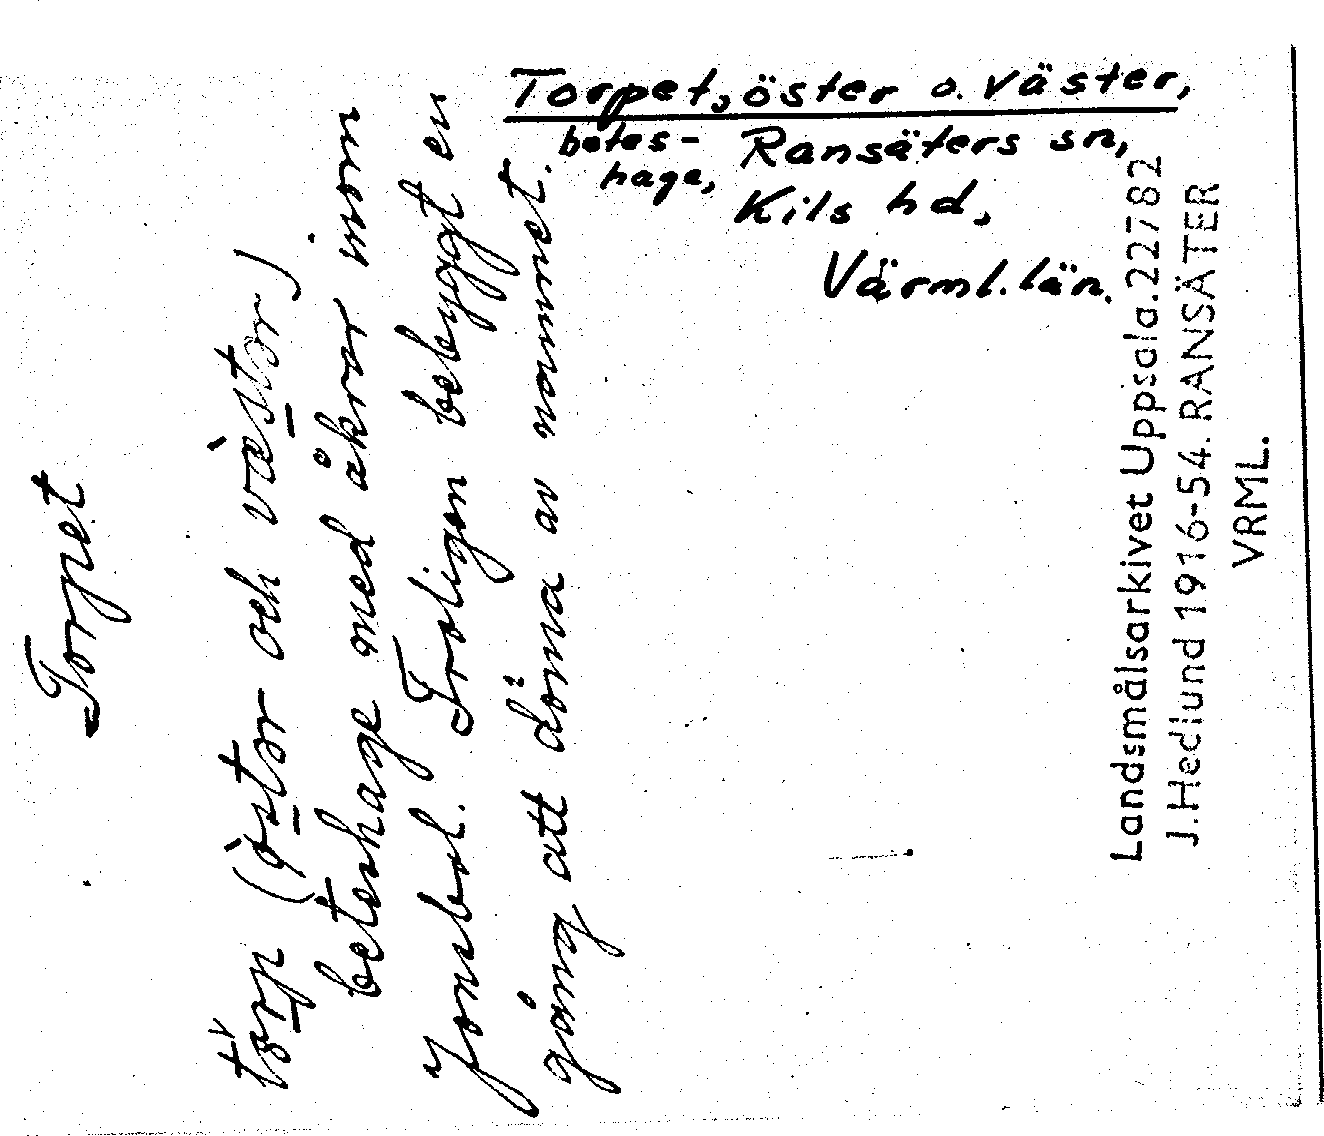 Torpet, öster o. väster,
betes- Ransäters sn,
hage, Kils hd,
Värml. län.
Torpet
(östər och västər)
beteshage med åkrar inom
Jonsbol. Troligen bebyggt en
gång att döma av namnet.
Landsmålsarkivet Uppsala. 22782
J. Hedlund 1916-54. RANSÄTER
VRML.